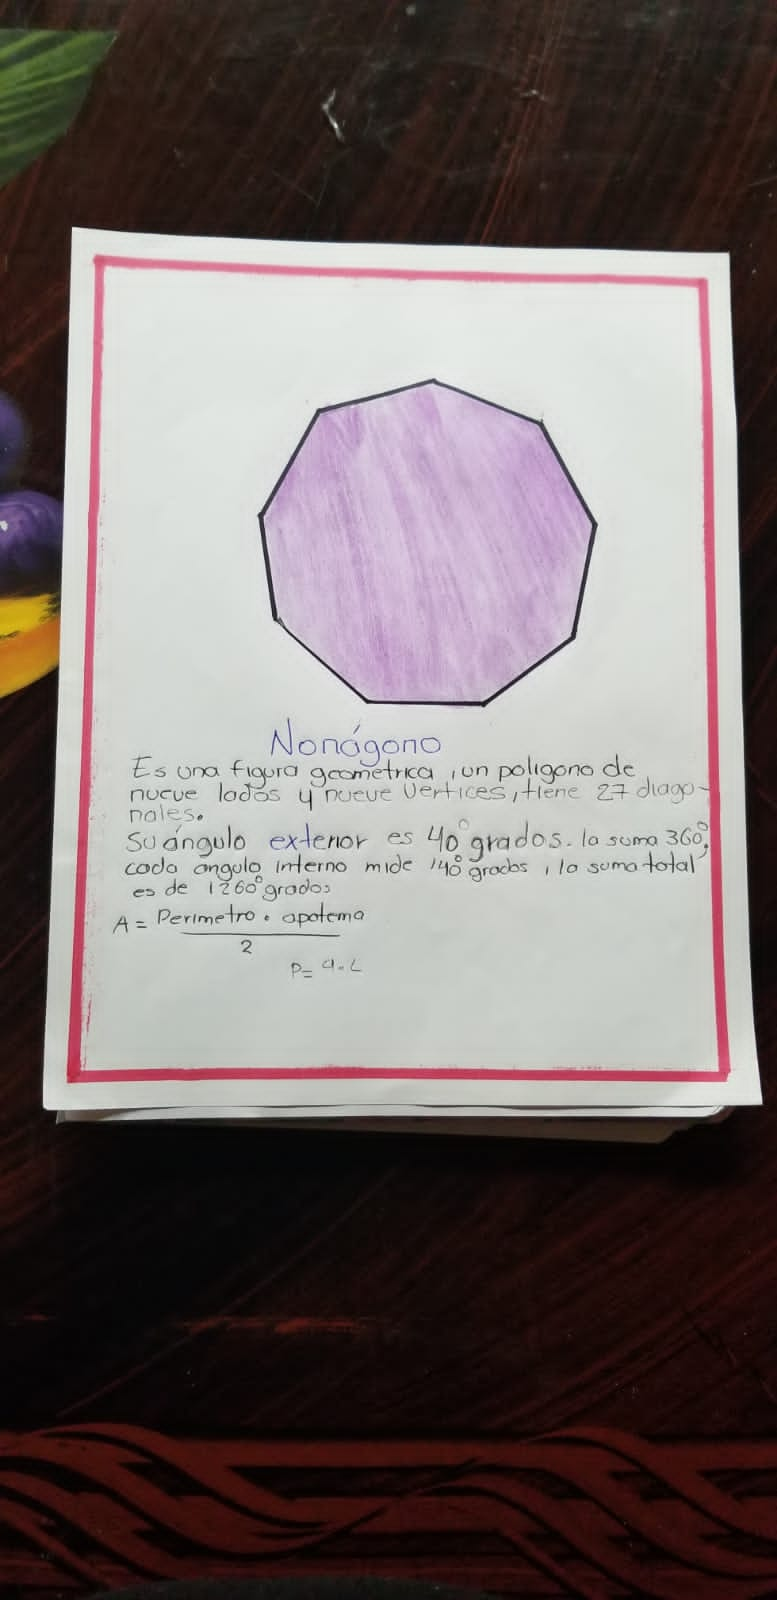 Nonágono
Es una figura geometrica, un poligono de
nueve lados y nueve vertices, tiene 27 diago-
nales.
Su ángulo exterior es 40° grados. la suma 360°,
cada angulo interno mide 140° grados, la suma total
es de 1260° grados
A = Perimetro • apotema
2
P= 9.L